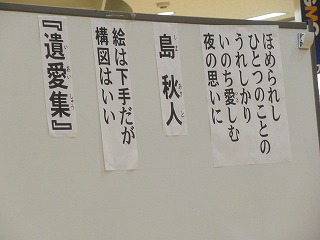 ほめられし
ひとつのことの
うれしかり
いのち愛しむ
夜の思いに
島 秋人
しま あきと
絵は下手だが
構図はいい
『遺愛集』
いあいしゅう